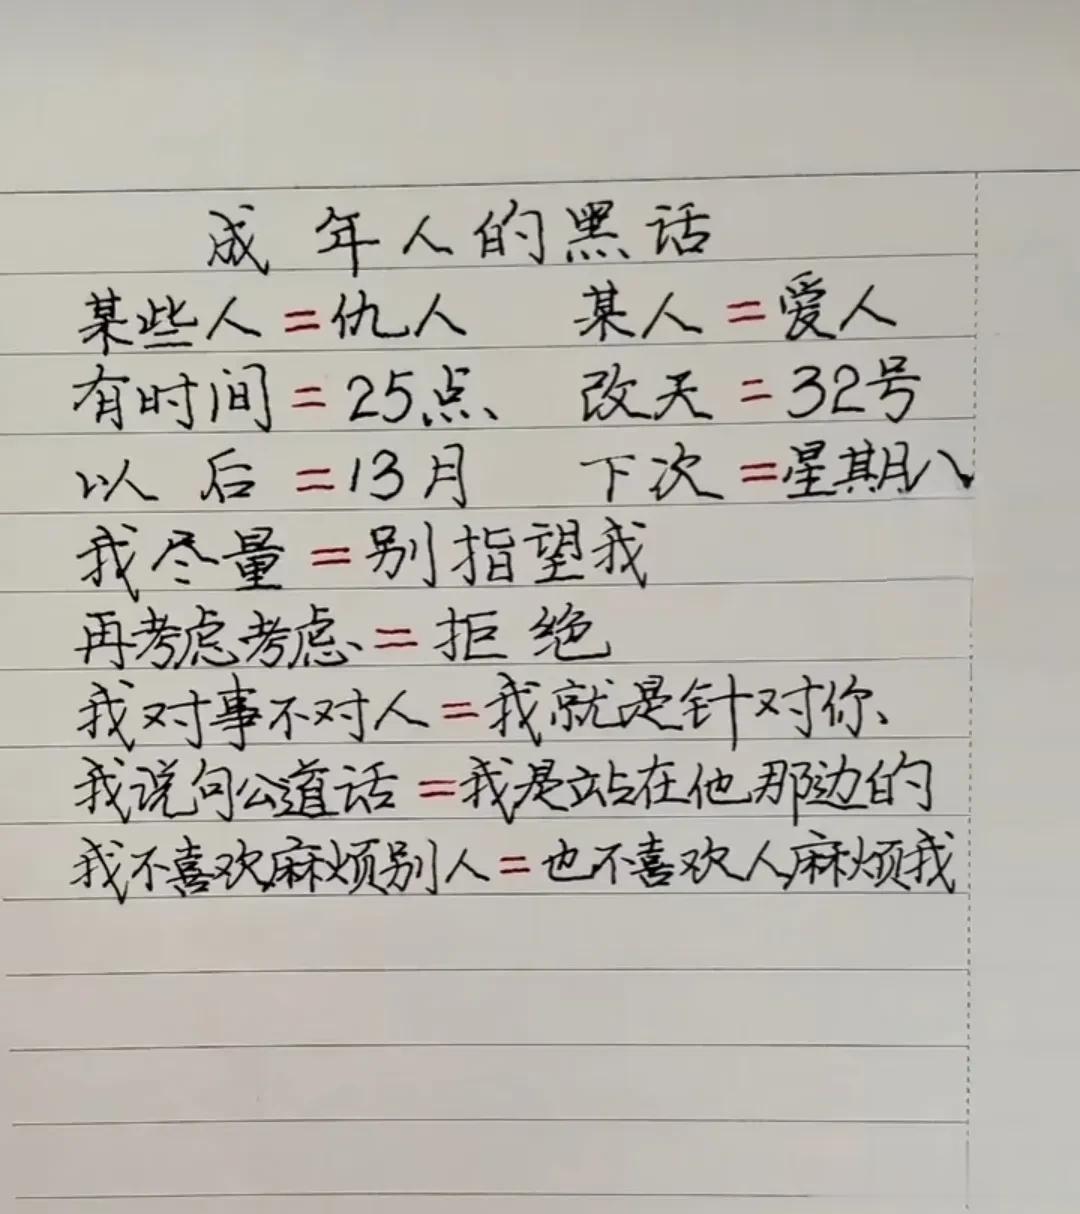 成年人的黑话
某些人=仇人 某人=爱人
有时间=25点、 改天=32号
以后=13月 下次=星期八
我尽量=别指望我
再考虑考虑、=拒绝
我对事不对人=我就是针对你、
我说句公道话=我是站在他那边的
我不喜欢麻烦别人=也不喜欢人麻烦我